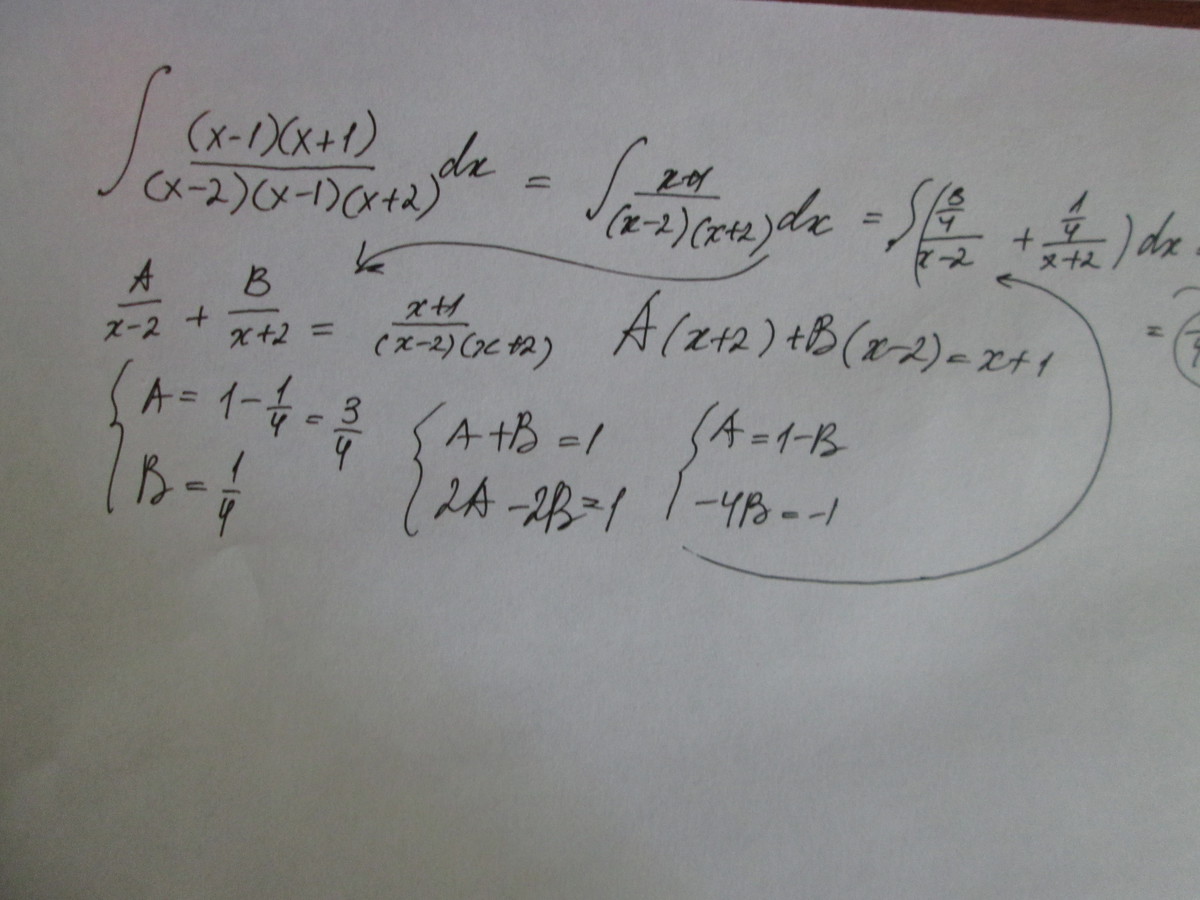 ∫ (x-1)(x+1) / (x-2)(x-1)(x+2) dx = ∫ x+1 / (x-2)(x+2) dx = ∫ ( 3/4 / x-2 + 1/4 / x+2 ) dx =
A / x-2 + B / x+2 = x+1 / (x-2)(x+2) A(x+2)+B(x-2)=x+1 =
{ A = 1 - 1/4 = 3/4 { A+B=1 { A=1-B
B = 1/4 2A-2B=1 -4B=-1